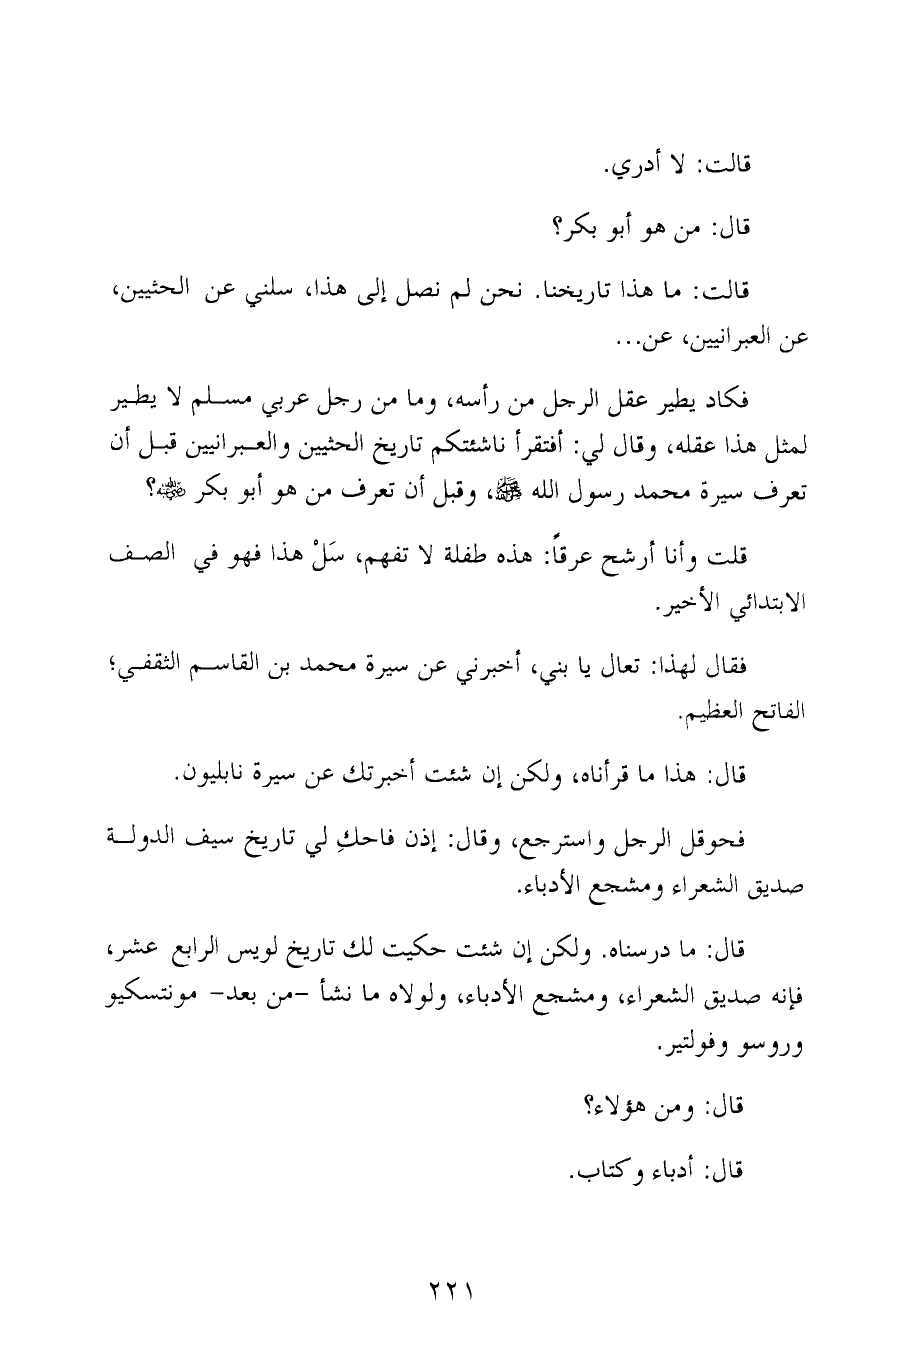 قالت: لا أدري.
قال: من هو أبو بكر؟
قالت: ما هذا تاريخنا. نحن لم نصل إلى هذا، سلني عن الحثيين،
عن العبرانيين، عن...
فكاد يطير عقل الرجل من رأسه، وما من رجل عربي مسلم لا يطير
لمثل هذا عقله، وقال لي: أفتقرأ ناشئتكم تاريخ الحثيين والعبرانيين قبل أن
تعرف سيرة محمد رسول الله ﷺ، وقبل أن تعرف من هو أبو بكر ؓ؟
قلت وأنا أرشح عرقاً: هذه طفلة لا تفهم، سَلْ هذا فهو في الصف
الابتدائي الأخير.
فقال لهذا: تعال يا بني، أخبرني عن سيرة محمد بن القاسم الثقفي؛
الفاتح العظيم.
قال: هذا ما قرأناه، ولكن إن شئت أخبرتك عن سيرة نابليون.
فحوقل الرجل واسترجع، وقال: إذن فاحكِ لي تاريخ سيف الدولة
صديق الشعراء ومشجع الأدباء.
قال: ما درسناه. ولكن إن شئت حكيت لك تاريخ لويس الرابع عشر،
فإنه صديق الشعراء، ومشجع الأدباء، ولولاه ما نشأ -من بعد- مونتسكيو
وروسو وفولتير.
قال: ومن هؤلاء؟
قال: أدباء وكتاب.
٢٢١